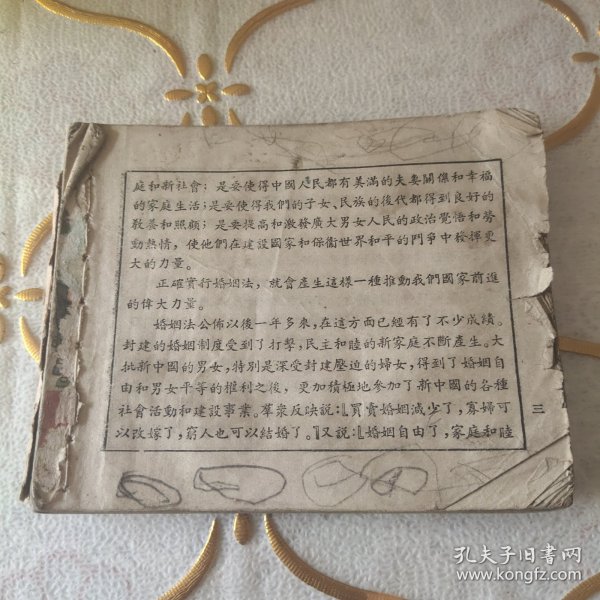 庭和新社會；是要使得中國人民都有美滿的夫妻關係和幸福
的家庭生活；是要使得我們的子女、民族的後代都得到良好的
敎養和照顧；是要提高和激發廣大男女人民的政治覺悟和勞
動熱情，使他們在建設國家和保衛世界和平的鬥爭中發揮更
大的力量。
正確實行婚姻法，就會產生這樣一種推動我們國家前進
的偉大力量。
婚姻法公佈以後一年多來，在這方面已經有了不少成績。
封建的婚姻制度受到了打擊，民主和睦的新家庭不斷產生。大
批新中國的男女，特別是深受封建壓迫的婦女，得到了婚姻自
由和男女平等的權利之後，更加積極地參加了新中國的各種
社會活動和建設事業。羣衆反映說：「買賣婚姻減少了，寡婦可
以改嫁了，窮人也可以結婚了。」又說：「婚姻自由了，家庭和睦
三
孔夫子旧书网
www.kongfz.com